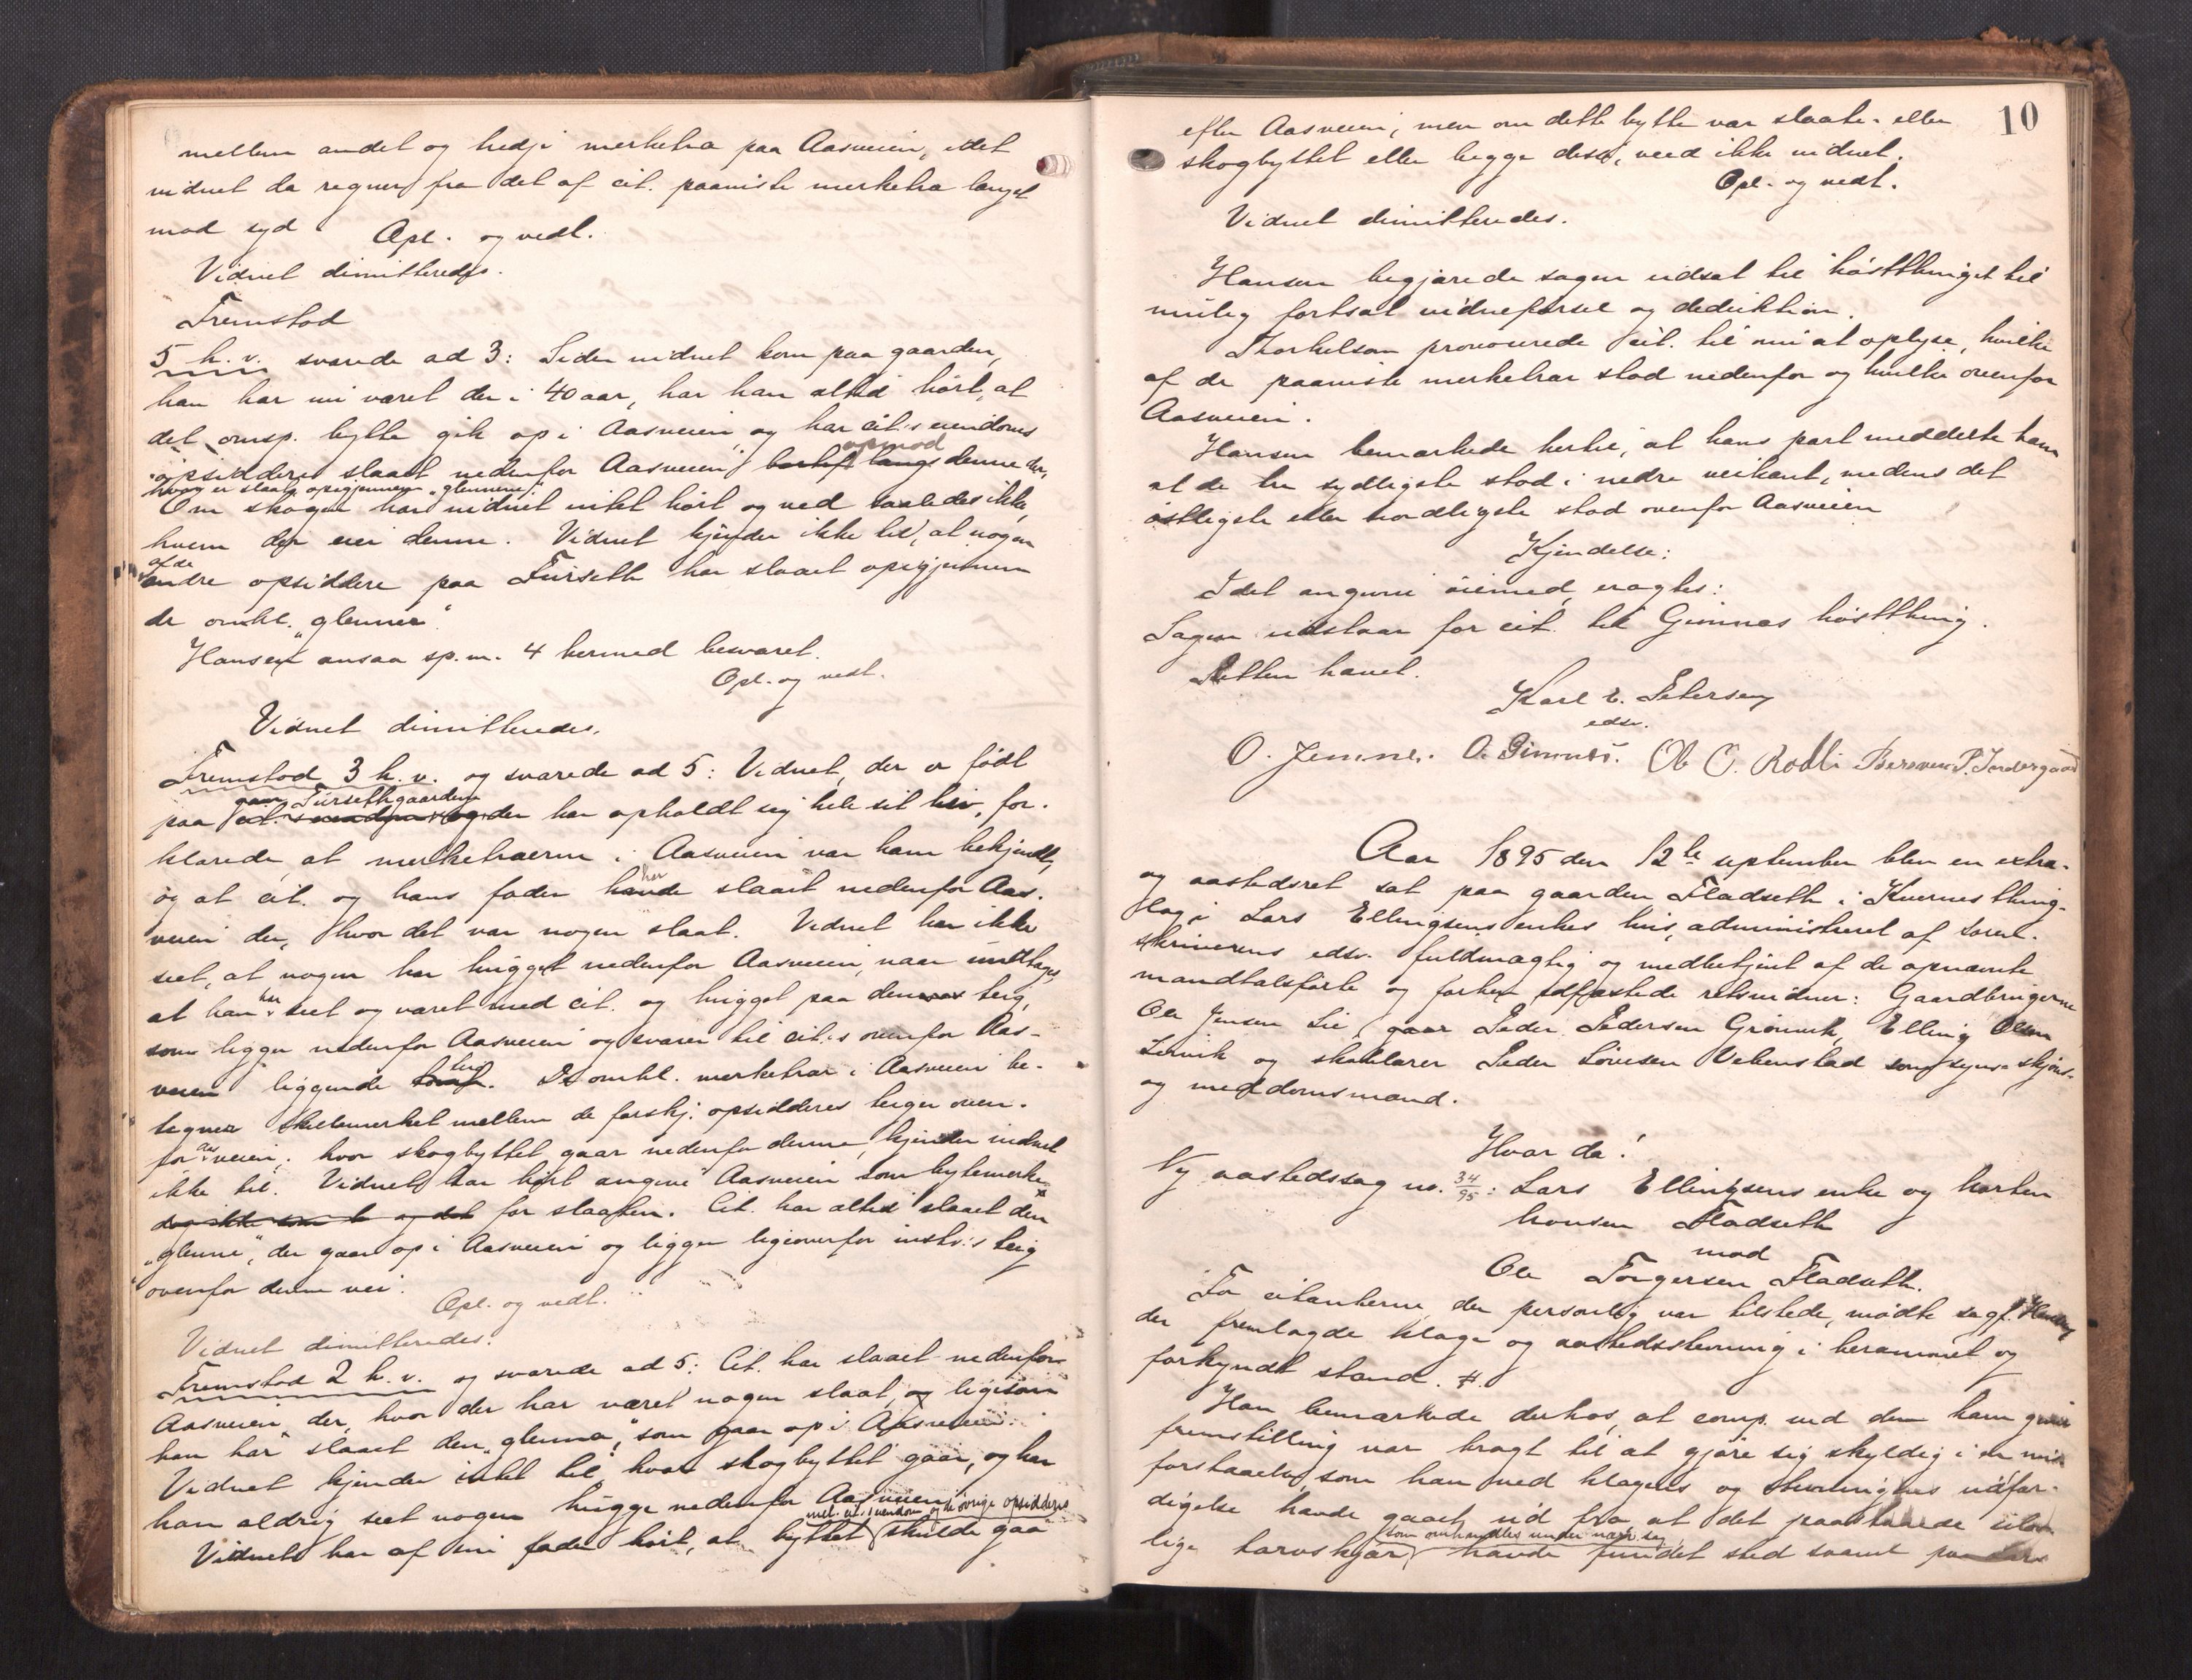 mellem andet og tredje merketræ paa Aasveien, idet
vidnet da regner fra det af cit. paaviste merketræ længst
mod syd Opl. og vedt.
Vidnet dimitteredes.
Fremstod
5 h. v. svarede ad 3: Siden vidnet kom paa gaarden,
han har nu været der i 40 aar, har han altid hört, at
det omsp. bytte gik op i Aasveien og har cit.s eiendoms
opsiddere slaaet nedenfor Aasveien langs opmod denne der,
hvor er slaat, opigjennem "glennene".
Om skogen har vidnet intet hört og ved saaledes ikke,
hvem der eier denne. Vidnet kjender ikke til, at nogen
af de
andre opsiddere paa Furseth har slaaet opigjennem
de omhl. "glenner".
Hansen ansaa sp.m. 4 hermed besvaret.
Opl. og vedt.
Vidnet dimitteredes.
Fremstod 3 h. v. og svarede ad 5: Vidnet, der er födt
paa gaarden Fursethgaardene og der har opholdt sig hele sit liv, for-
klarede, at merketræerne i Aasveien var ham bekjendt,
og at cit. og hans fader har slaaet nedenfor Aas-
veien der, hvor det var nogen slaat. Vidnet har ikke
seet, at nogen har hugget nedenfor Aasveien, naar undtages,
at han har seet og været med cit. og hugget paa den teig,
som ligger nedenfor Aasveien og svarer til cit.s ovenfor Aas-
veien liggende teig. De omhl. merketrær i Aasveien be-
tegner skillemerket mellem de forskj. opsidderes teiger oven-
for Aasveien; hvor skogbyttet gaar nedenfor denne, kjender vidnet
ikke til. Vidnet har hört angive Aasveien som bytemerke
for slaatten. Cit. har altid slaaet den
"glenne", der gaar op i Aasveien og ligger ligeoverfor instr.s teig
ovenfor denne vei.
Opl. og vedt.
Vidnet dimitteredes.
Fremstod 2 h. v. og svarede ad 5: Cit. har slaaet nedenfor
Aasveien der, hvor der har været nogen slaat, og ligesom
han har slaaet den "glenna", som gaar op i Aasveien.
Vidnet kjender intet til, hvor skogbyttet gaar, og har
han aldrig seet nogen hugge nedenfor Aasveien.
mel. cit.s eiendom og de övrige opsidderes
Vidnet har af sin fader hört, at byttet skulde gaa
10
efter Aasveien, men om dette bytte var slaatte- eller
skogbyttet eller begge disse, veed ikke vidnet.
Opl. og vedt.
Vidnet dimitteredes.
Hansen begjærede sagen udsat til höstthinget til
mulig fortsat vidneförsel og deduktion.
Thorkelson provocerede cit. til nu at oplyse, hvilke
af de paaviste merketrær stod nedenfor og hvilke ovenfor
Aasveien.
Hansen bemærkede hertil, at hans part meddelte ham
at de tre sydligste stod i nedre veikant, medens det
östligste eller nordligste stod ovenfor Aasveien
Kjendelse:
I det angivne öiemed eragtes:
Sagen udstaar for cit. til Gimnæs höstthing.
Retten hævet.
Karl E. Petersen
edsv.
O. Jemne. O. Gimnes. Ole O. Rodli Bersven P. Indergaard
Aar 1895 den 12te september blev en extra-
og aastedsret sat paa gaarden Fladseth i Kvernes thing-
lag i Lars Ellingsens enkes hus, administreret af soren-
skriverens edsv. fuldmægtig og medbetjent af de opnævnte
mandtalsförte og forhen edfæstede retsvidner: Gaardbrugerne
Ole Jensen Lie, gaar Peder Pedersen Grönvik, Elling Olsen
Leervik og skolelærer Peder Sivesen Vebenstad som syns- skjöns-
og meddomsmænd.
Hvor da!
Ny aastedssag no. 34/95: Lars Ellingsens enke og karsten
hansen Fladseth
mod
Ole Torgersen Fladseth.
For citanterne, der personlig var tilstede, mödte sagf. Hansen
der fremlagde klage og aastedsstevning i berammet og
forkyndt stand. #.
Han bemærkede derhos, at comp. ved den ham givne
fremstilling var bragt til at gjöre sig skyldig i en mis
forstaaelse, som han ved klagens og stevningens udfær-
digelse havde gaaet ud fra at det paastaaede ulov-
som omhandles under nærv. sag
lige torvskjær, havde fundet sted saavel paa Lars